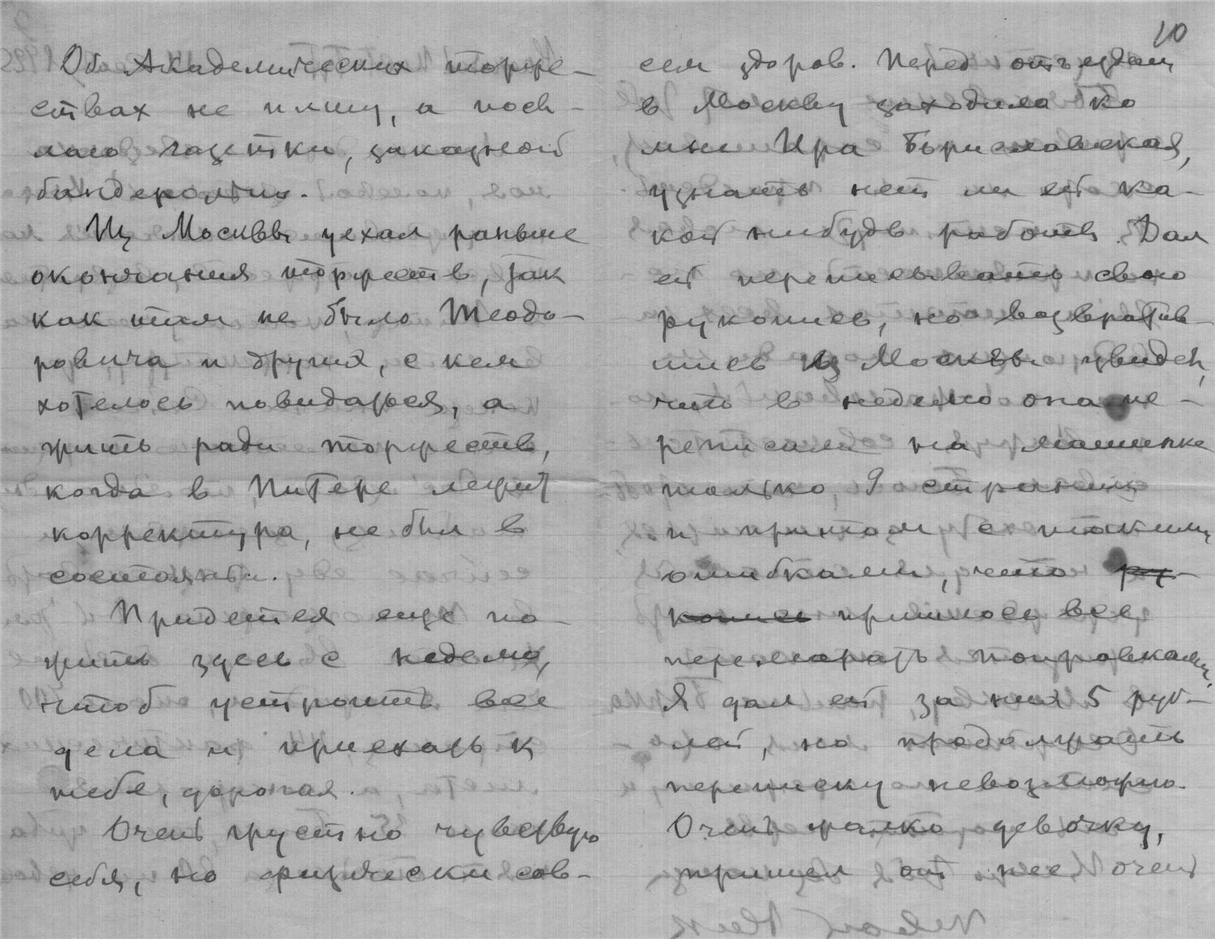 Об Академических торже-
ствах не пишу, а посы-
лаю газетки, заказной
бандеролью.
Из Москвы уехал раньше
окончания торжеств, так
как там не было Теодо-
ровича и других, с кем
хотелось повидаться, а
жить ради торжеств,
когда в Питере лежит
корректура, не был в
состоянии.
Придется еще по-
жить здесь с неделю,
чтоб устроить все
дела и приехать к
тебе, дорогая.
Очень грустно чувствую
себя, но физически сов-
10
сем здоров. Перед отъездом
в Москву заходила ко
мне Ира Бориславская,
узнать нет ли ей ка-
кой нибудь работы. Дал
ей переписывать свою
рукопись, но возвратив-
шись из Москвы увидел,
что в неделю она пе-
реписала на машинке
только 9 страниц
и притом с такими
ошибками, что ру-
копись пришлось все
перемарать поправками.
Я дал ей за них 5 руб-
лей, но продолжать
переписку невозможно.
Очень жалко девочку,
пришел от нее очень